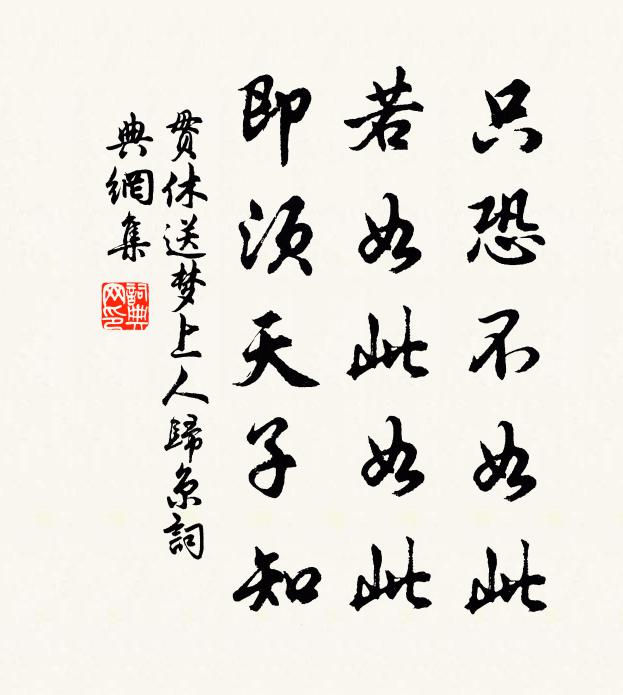 只恐不如此
若如此如此
即须天子知
贯休送梦上人歸京詞
典網集
詞典
网印